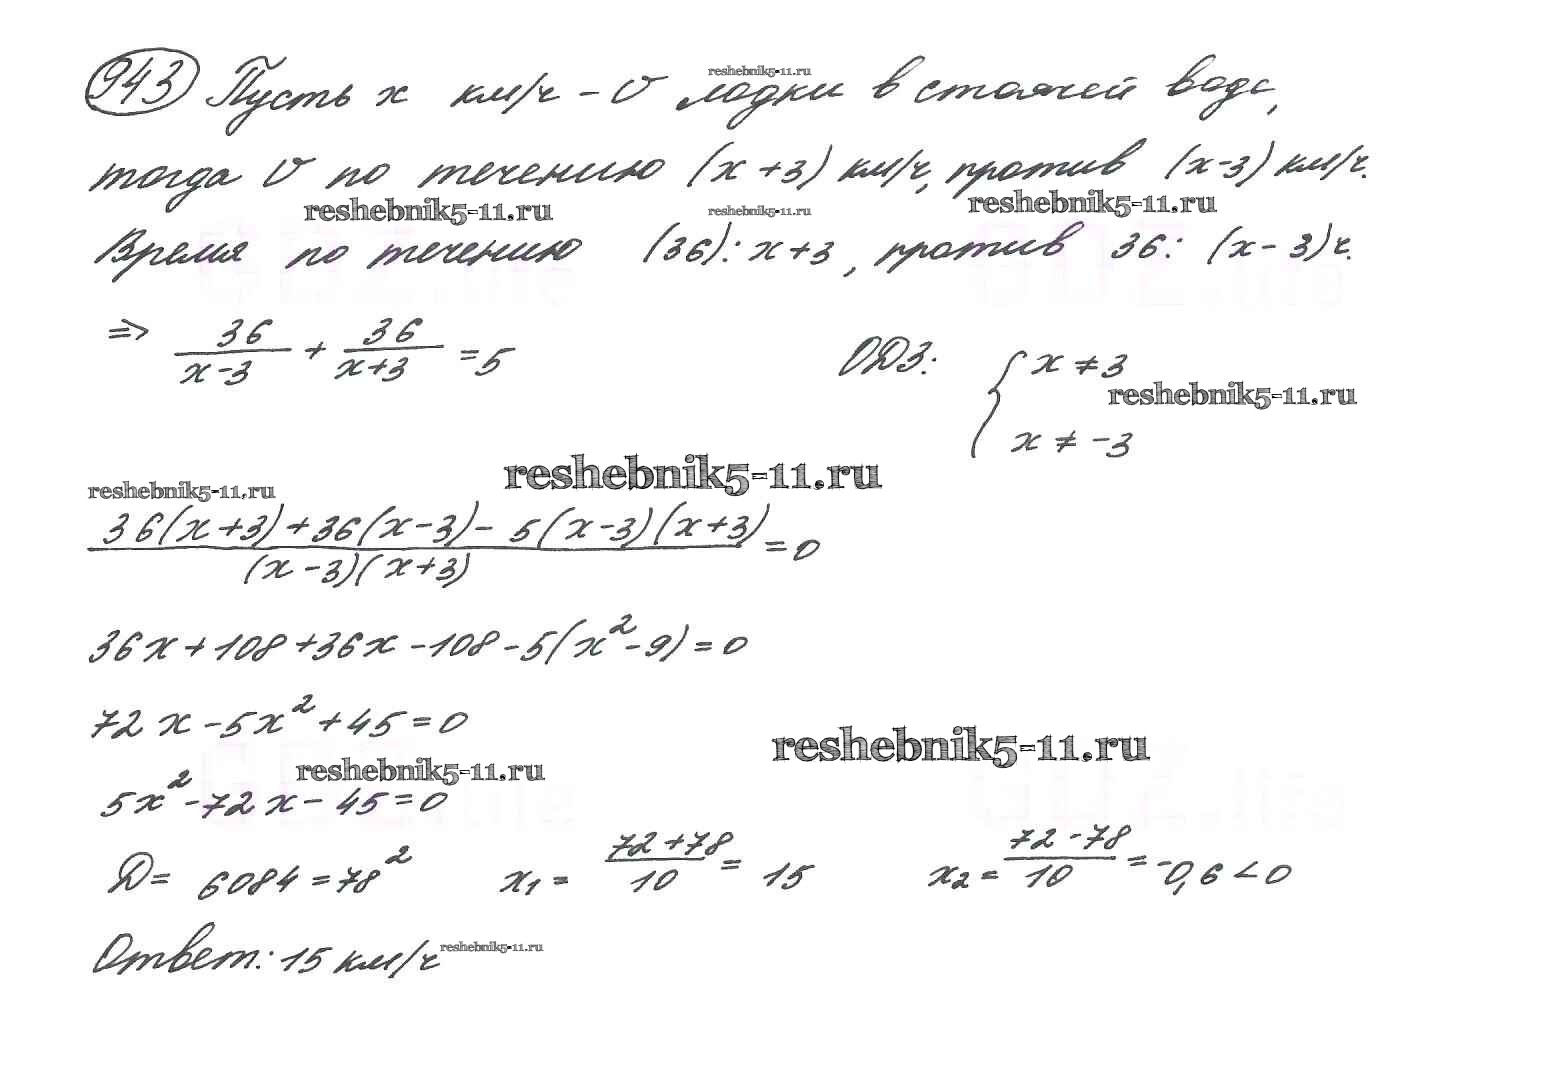 943 Пусть x км/ч - v лодки в стоячей воде,
reshebnik5-11.ru
тогда v по течению (x+3) км/ч, против (x-3) км/ч.
reshebnik5-11.ru reshebnik5-11.ru reshebnik5-11.ru
Время по течению (36): x+3, против 36: (x-3) ч.
GDZ.life GDZ.life
=> 36/(x-3) + 36/(x+3) = 5 ОДЗ: { x ≠ 3
reshebnik5-11.ru
x ≠ -3
reshebnik5-11.ru
reshebnik5-11.ru
36(x+3)+36(x-3)-5(x-3)(x+3)
(x-3)(x+3) = 0
36x+108+36x-108-5(x²-9)=0
72x-5x²+45=0
reshebnik5-11.ru
reshebnik5-11.ru
5x²-72x-45=0
GDZ.life GDZ.life
D= 6084=78² x₁= (72+78)/10 = 15 x₂= (72-78)/10 = -0,6<0
Ответ: 15 км/ч
reshebnik5-11.ru